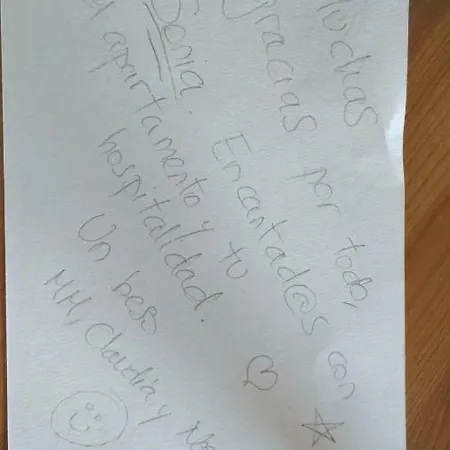 Muchas
gracias por todo,
Sonia. Encantad@s con
el apartamento y tu
hospitalidad.
Un beso
MM, Claudia y